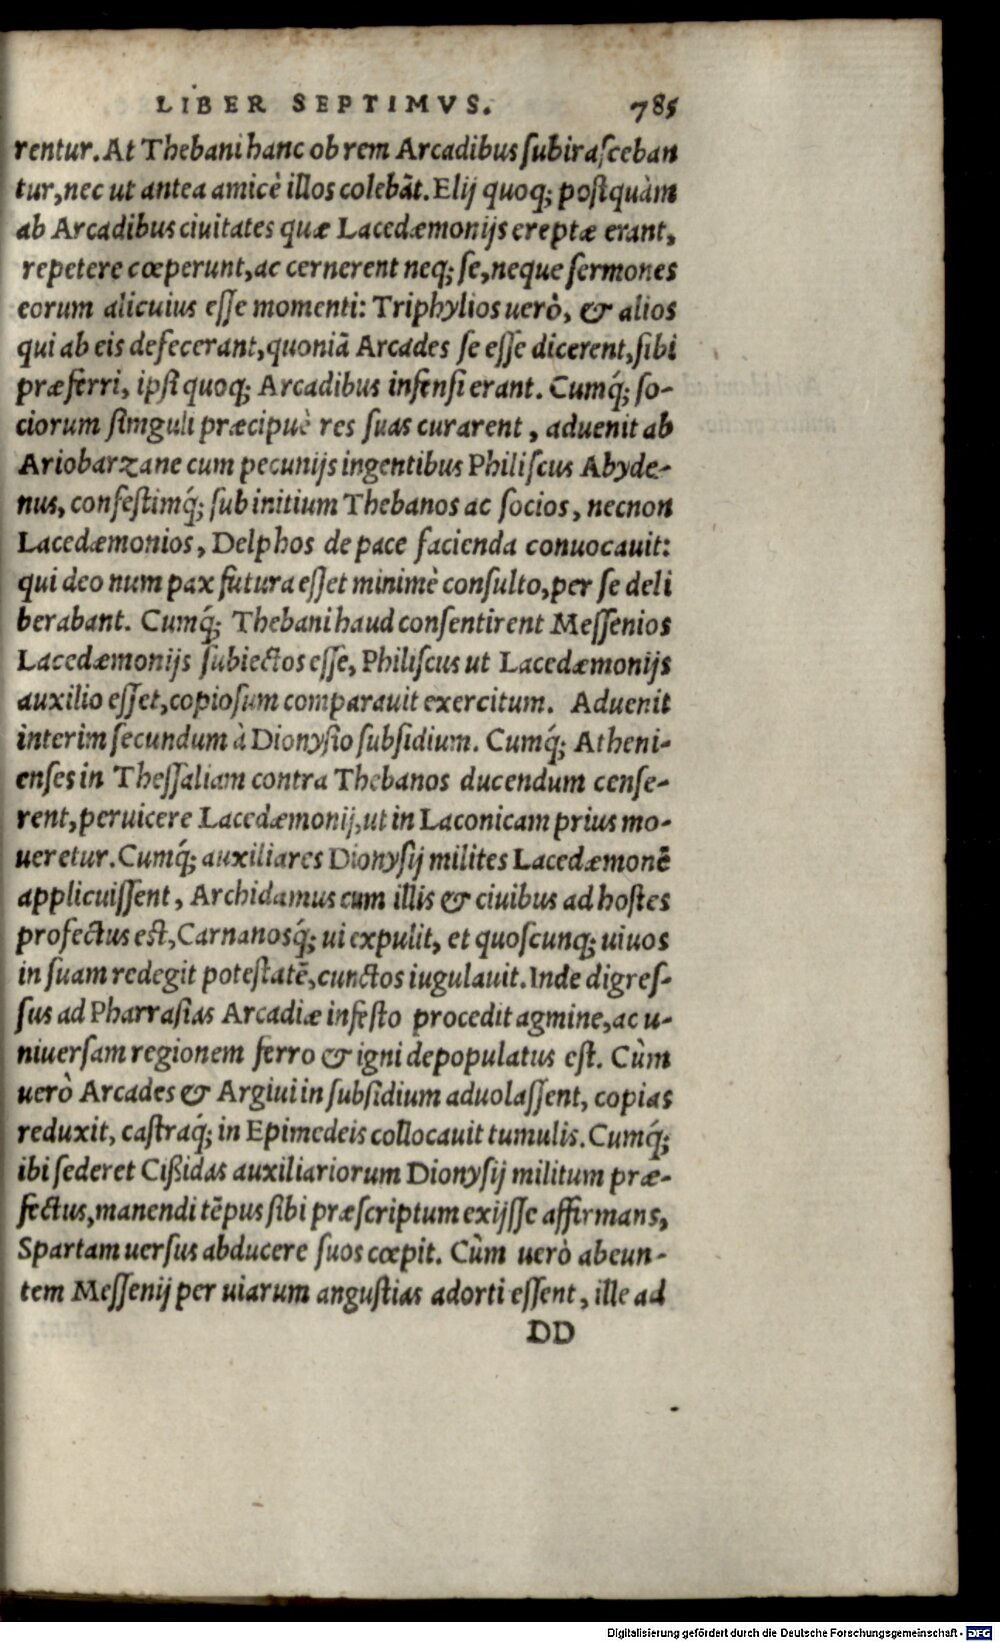 LIBER SEPTIMVS. 785
rentur. At Thebani hanc ob rem Arcadibus ſubiraſceban
tur, nec ut antea amicè illos colebãt. Elij quoq; poſtquàm
ab Arcadibus ciuitates quæ Lacedæmonijs ereptæ erant,
repetere cœperunt, ac cernerent neq; ſe, neque ſermones
eorum alicuius eſſe momenti: Triphylios uerò, & alios
qui ab eis defecerant, quoniã Arcades ſe eſſe dicerent, ſibi
præferri, ipſi quoq; Arcadibus infenſi erant. Cumq́; ſo-
ciorum ſinguli præcipuè res ſuas curarent, aduenit ab
Ariobarzane cum pecunijs ingentibus Philiſcus Abyde-
nus, confeſtimq́; ſub initium Thebanos ac ſocios, necnon
Lacedæmonios, Delphos de pace facienda conuocauit:
qui deo num pax futura eſſet minimè conſulto, per ſe deli
berabant. Cumq́; Thebani haud conſentirent Meſſenios
Lacedæmonijs ſubiectos eſſe, Philiſcus ut Lacedæmonijs
auxilio eſſet, copioſum comparauit exercitum. Aduenit
interim ſecundum à Dionyſio ſubſidium. Cumq́; Atheni-
enſes in Theſſaliam contra Thebanos ducendum cenſe-
rent, peruicere Lacedæmonij, ut in Laconicam prius mo-
ueretur. Cumq́; auxiliares Dionyſij milites Lacedæmonē
applicuiſſent, Archidamus cum illis & ciuibus ad hoſtes
profectus eſt, Carnanosq́; ui expulit, et quoſcunq; uiuos
in ſuam redegit poteſtatē, cunctos iugulauit. Inde digreſ-
ſus ad Pharraſias Arcadiæ infeſto procedit agmine, ac u-
niuerſam regionem ferro & igni depopulatus eſt. Cùm
uerò Arcades & Argiui in ſubſidium aduolaſſent, copias
reduxit, caſtraq́; in Epimedeis collocauit tumulis. Cumq́;
ibi ſederet Cißidas auxiliariorum Dionyſij militum præ-
fectus, manendi tēpus ſibi præſcriptum exijſſe affirmans,
Spartam uerſus abducere ſuos cœpit. Cùm uerò abeun-
tem Meſſenij per uiarum anguſtias adorti eſſent, ille ad
DD
Digitalisierung gefördert durch die Deutsche Forschungsgemeinschaft - DFG